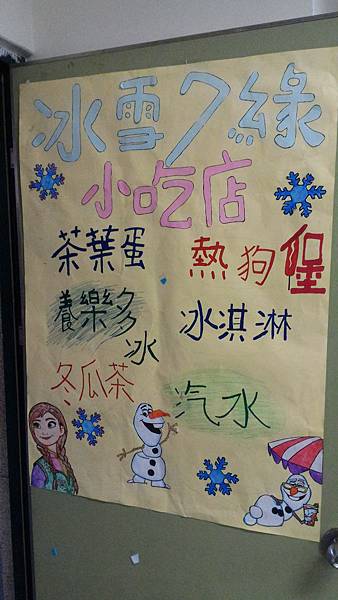 冰雪7緣
小吃店
茶葉蛋
熱狗堡
養樂多冰
冰淇淋
冬瓜茶
汽水